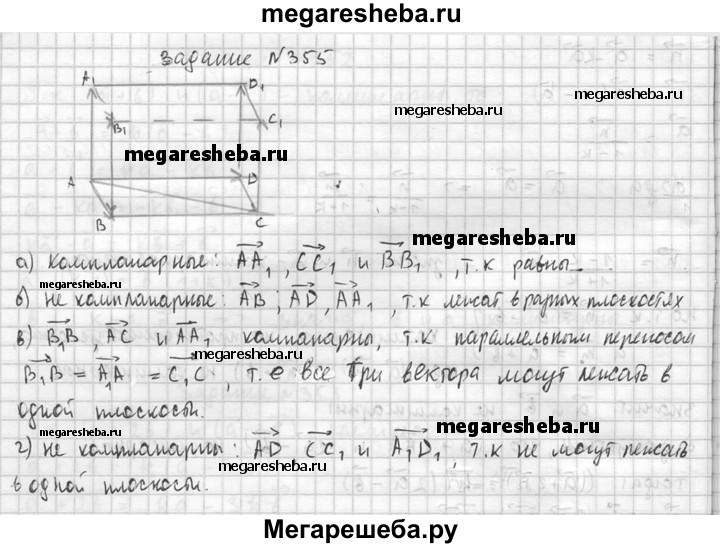 megaresheba.ru
задание №355
A₁
D₁
megaresheba.ru
megaresheba.ru
B₁
C₁
megaresheba.ru
A
D
B
C
megaresheba.ru
а) компланарные: AA₁, CC₁ и BB₁, т.к равны.
megaresheba.ru
б) не компланарные: AB; AD, AA₁, т.к лежат в разных плоскостях
в) B₁B, AC и AA₁ компанарны, т.к параллельным переносом
megaresheba.ru
B₁B = A₁A = C₁C, т.е все три вектора могут лежать в
одной плоскости.
megaresheba.ru
megaresheba.ru
г) не компланарны: AD CC₁ и A₁D₁, т.к не могут лежать
megaresheba.ru
в одной плоскости.
Мегарешеба.ру